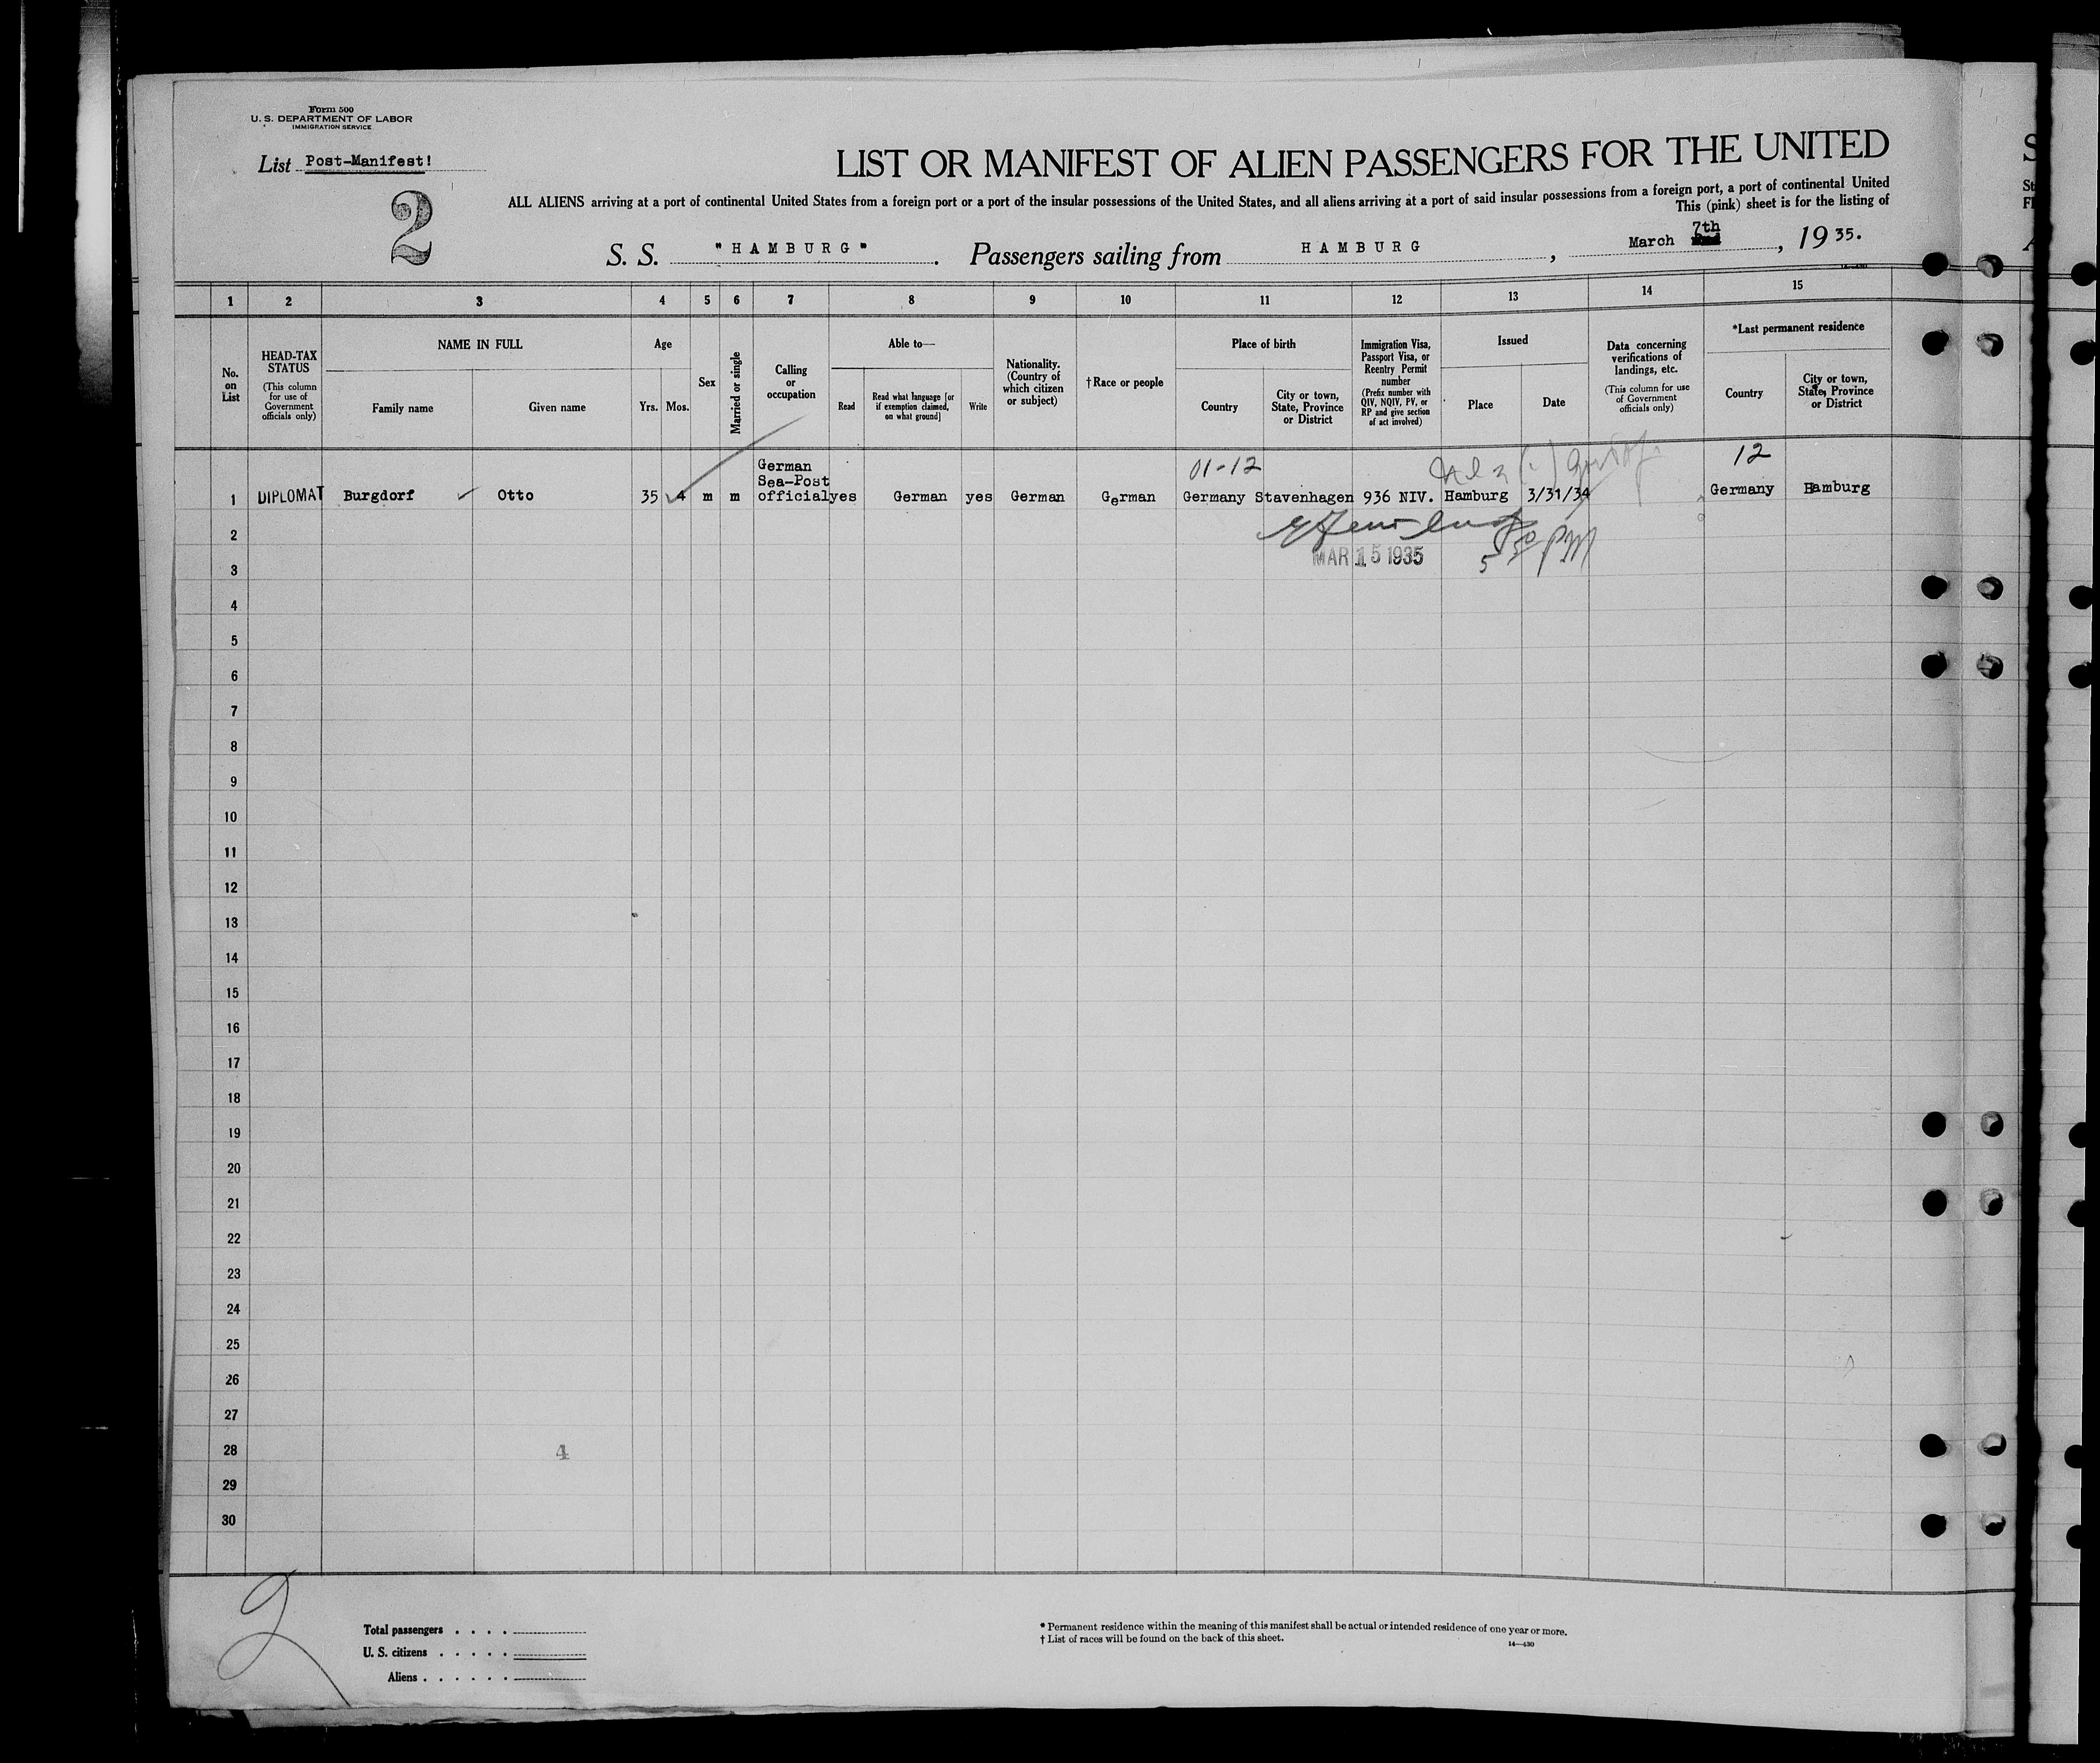 Form 500
U. S. DEPARTMENT OF LABOR
IMMIGRATION SERVICE
List Post-Manifest!
2
LIST OR MANIFEST OF ALIEN PASSENGERS FOR THE UNITED
ALL ALIENS arriving at a port of continental United States from a foreign port or a port of the insular possessions of the United States, and all aliens arriving at a port of said insular possessions from a foreign port, a port of continental United
This (pink) sheet is for the listing of
S. S. "HAMBURG". Passengers sailing from HAMBURG, March 7th, 1935.
1 2 3 4 5 6 7 8 9 10 11 12 13 14 15
No. on List
HEAD-TAX STATUS
(This column for use of Government officials only)
NAME IN FULL
Family name
Given name
Age
Yrs. Mos.
Sex
Married or single
Calling or occupation
Able to—
Read
Read what language [or if exemption claimed, on what ground]
Write
Nationality. (Country of which citizen or subject)
†Race or people
Place of birth
Country
City or town, State, Province or District
Immigration Visa, Passport Visa, or Reentry Permit number
(Prefix number with QIV, NQIV, PV, or RP and give section of act involved)
Issued
Place
Date
Data concerning verifications of landings, etc.
(This column for use of Government officials only)
*Last permanent residence
Country
City or town, State, Province or District
01-12
12
1 DIPLOMAT Burgdorf Otto 35 4 m m German Sea-Post official yes German yes German German Germany Stavenhagen 936 NIV. Hamburg 3/31/34 Germany Hamburg
2
MAR 15 1935 5 50 PM
3
4
5
6
7
8
9
10
11
12
13
14
15
16
17
18
19
20
21
22
23
24
25
26
27
28 4
29
30
2
Total passengers . . . .
U. S. citizens . . . . .
Aliens . . . . . .
* Permanent residence within the meaning of this manifest shall be actual or intended residence of one year or more.
† List of races will be found on the back of this sheet.
14—430